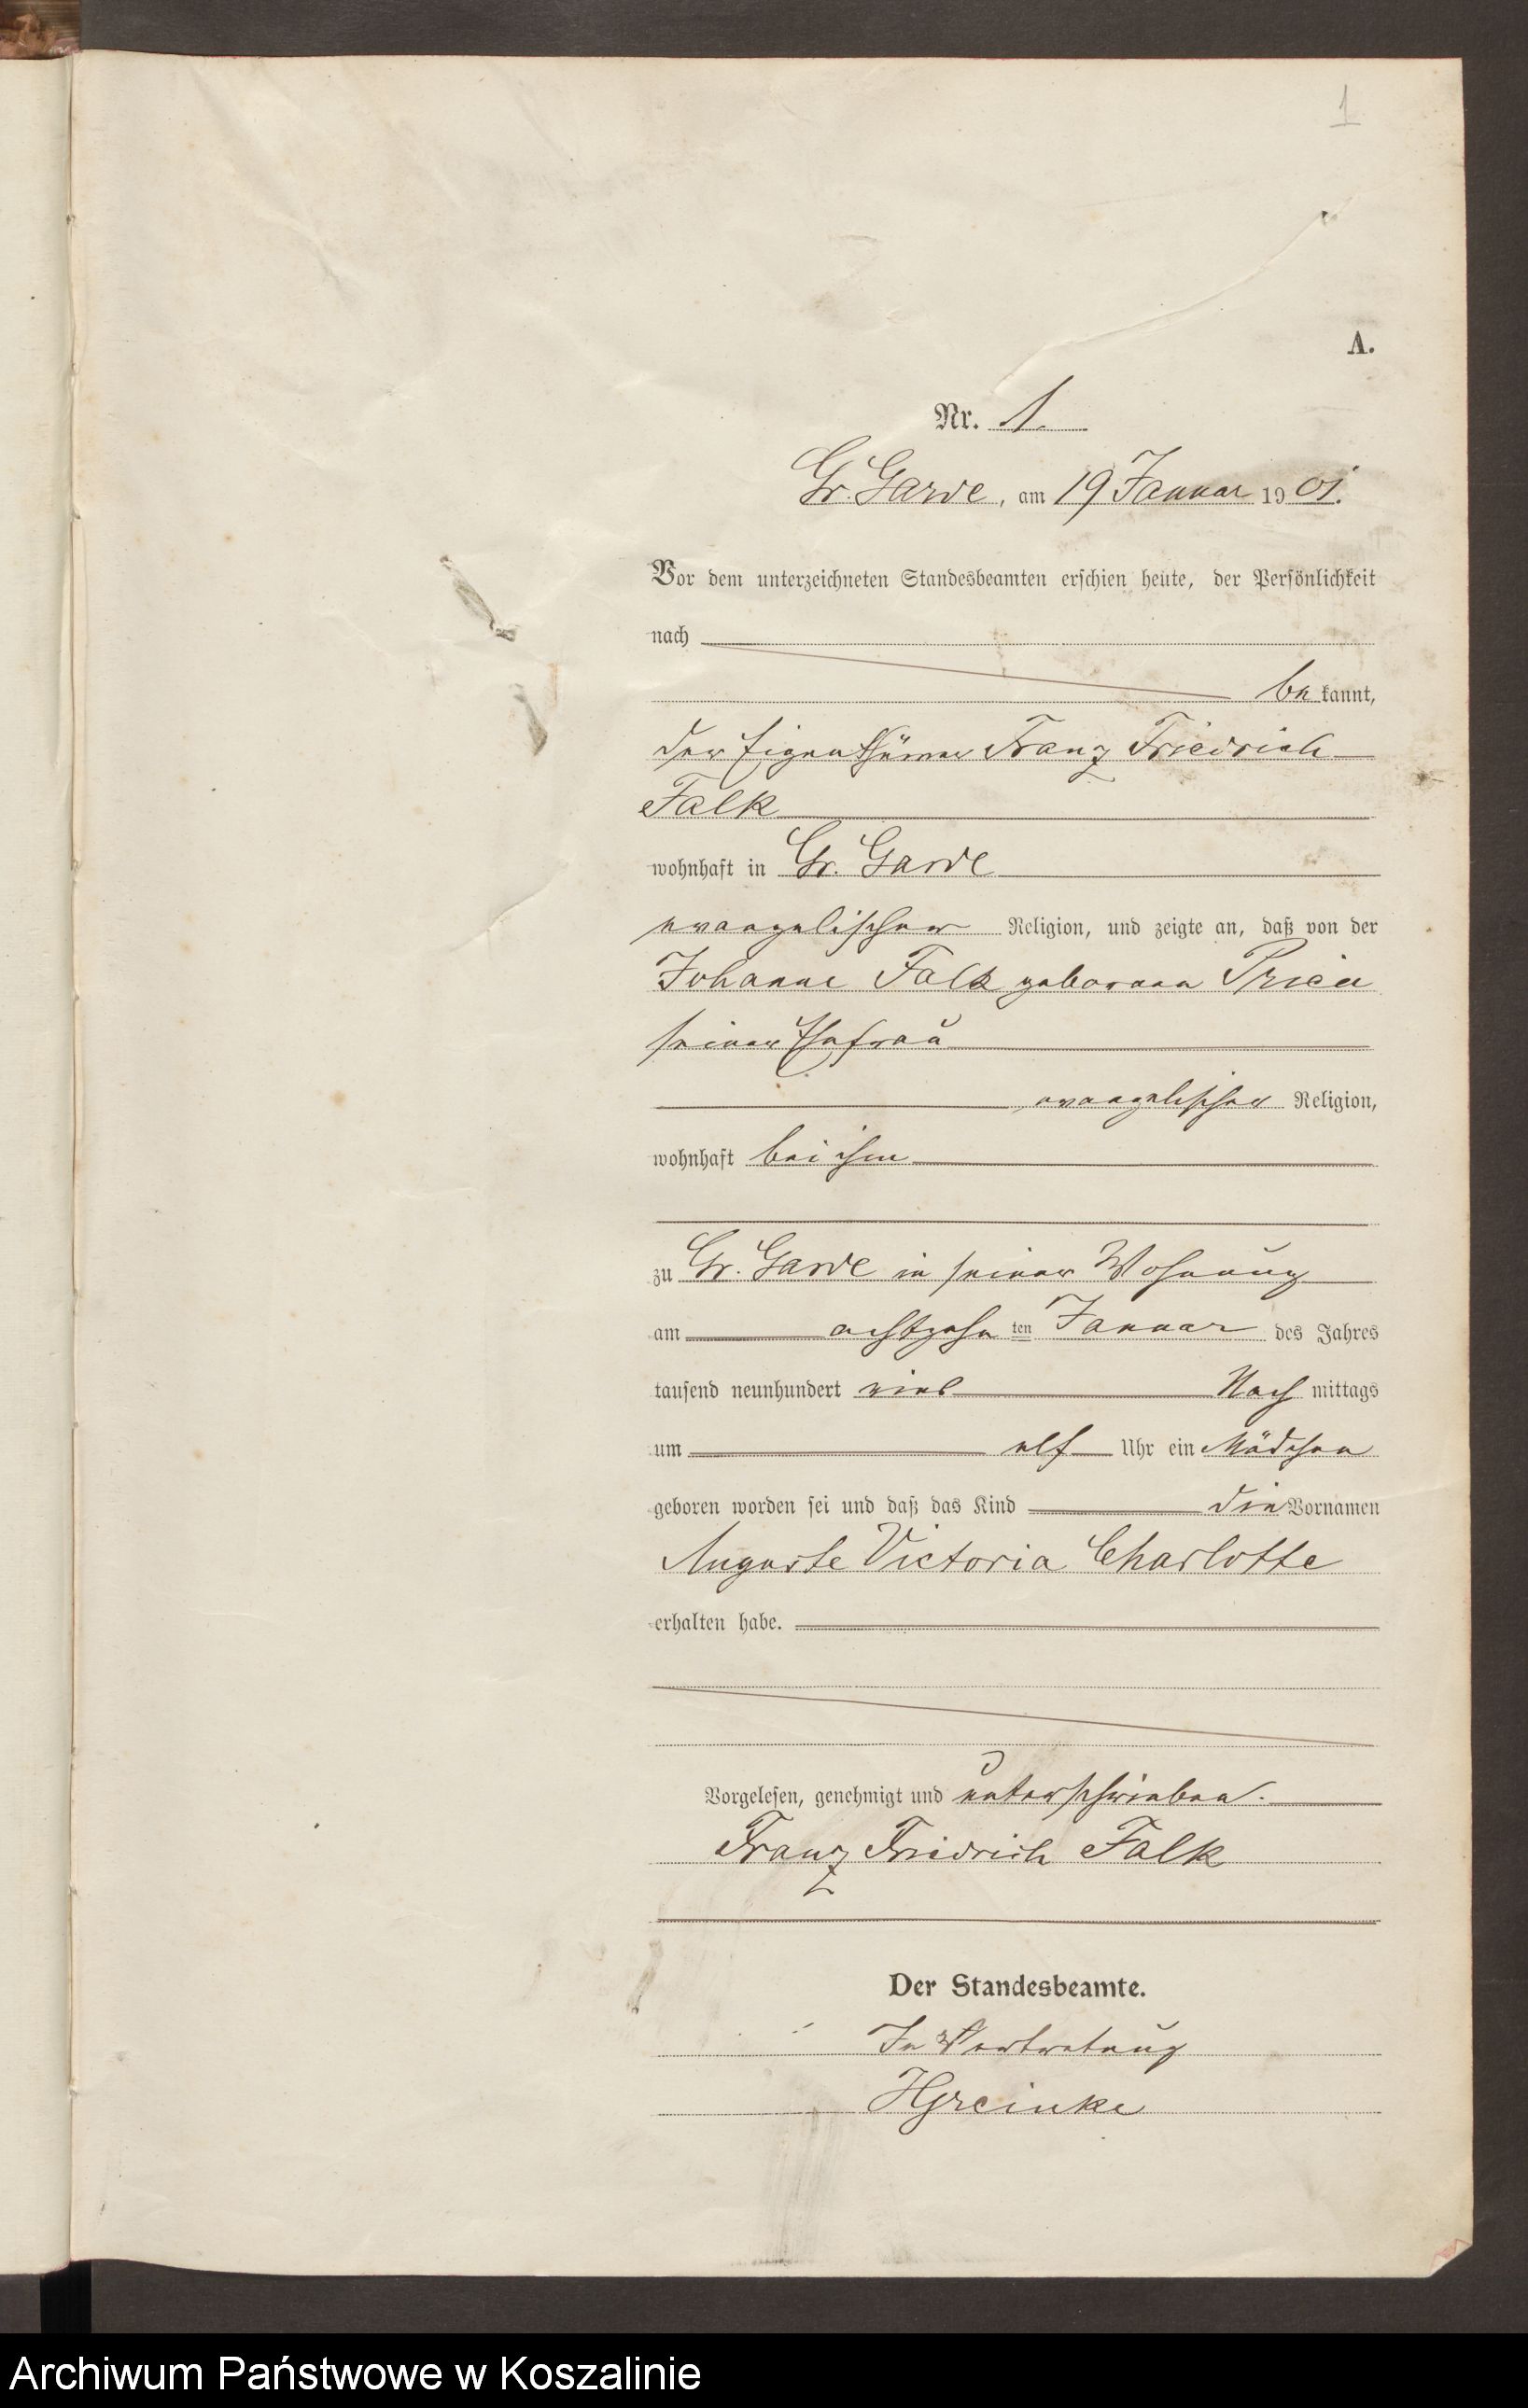 1
A.
Nr. 1.
Gr. Garde, am 19 Januar 1901.
Vor dem unterzeichneten Standesbeamten erschien heute, der Persönlichkeit
nach
bekannt,
der Eigenthümer Franz Friedrich
Falk
wohnhaft in Gr. Garde
evangelischer Religion, und zeigte an, daß von der
Johanne Falk geborenen
seiner Ehefrau
evangelischer Religion,
wohnhaft bei ihm
zu Gr. Garde in seiner Wohnung
am achtzehnten Januar des Jahres
tausend neunhundert eins Nachmittags
um elf Uhr ein Mädchen
geboren worden sei und daß das Kind die Vornamen
Auguste Victoria Charlotte
erhalten habe.
Vorgelesen, genehmigt und unterschrieben.
Franz Friedrich Falk
Der Standesbeamte.
In Vertretung
Archiwum Państwowe w Koszalinie